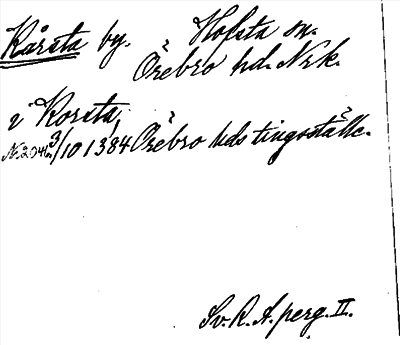 Kårsta by. Hofsta sn.
Örebro hd. Nrk.
i Korsta,
N. 2046. 3/10 1384 Örebro hds tingsställe.
Sv. R. A. perg. II.